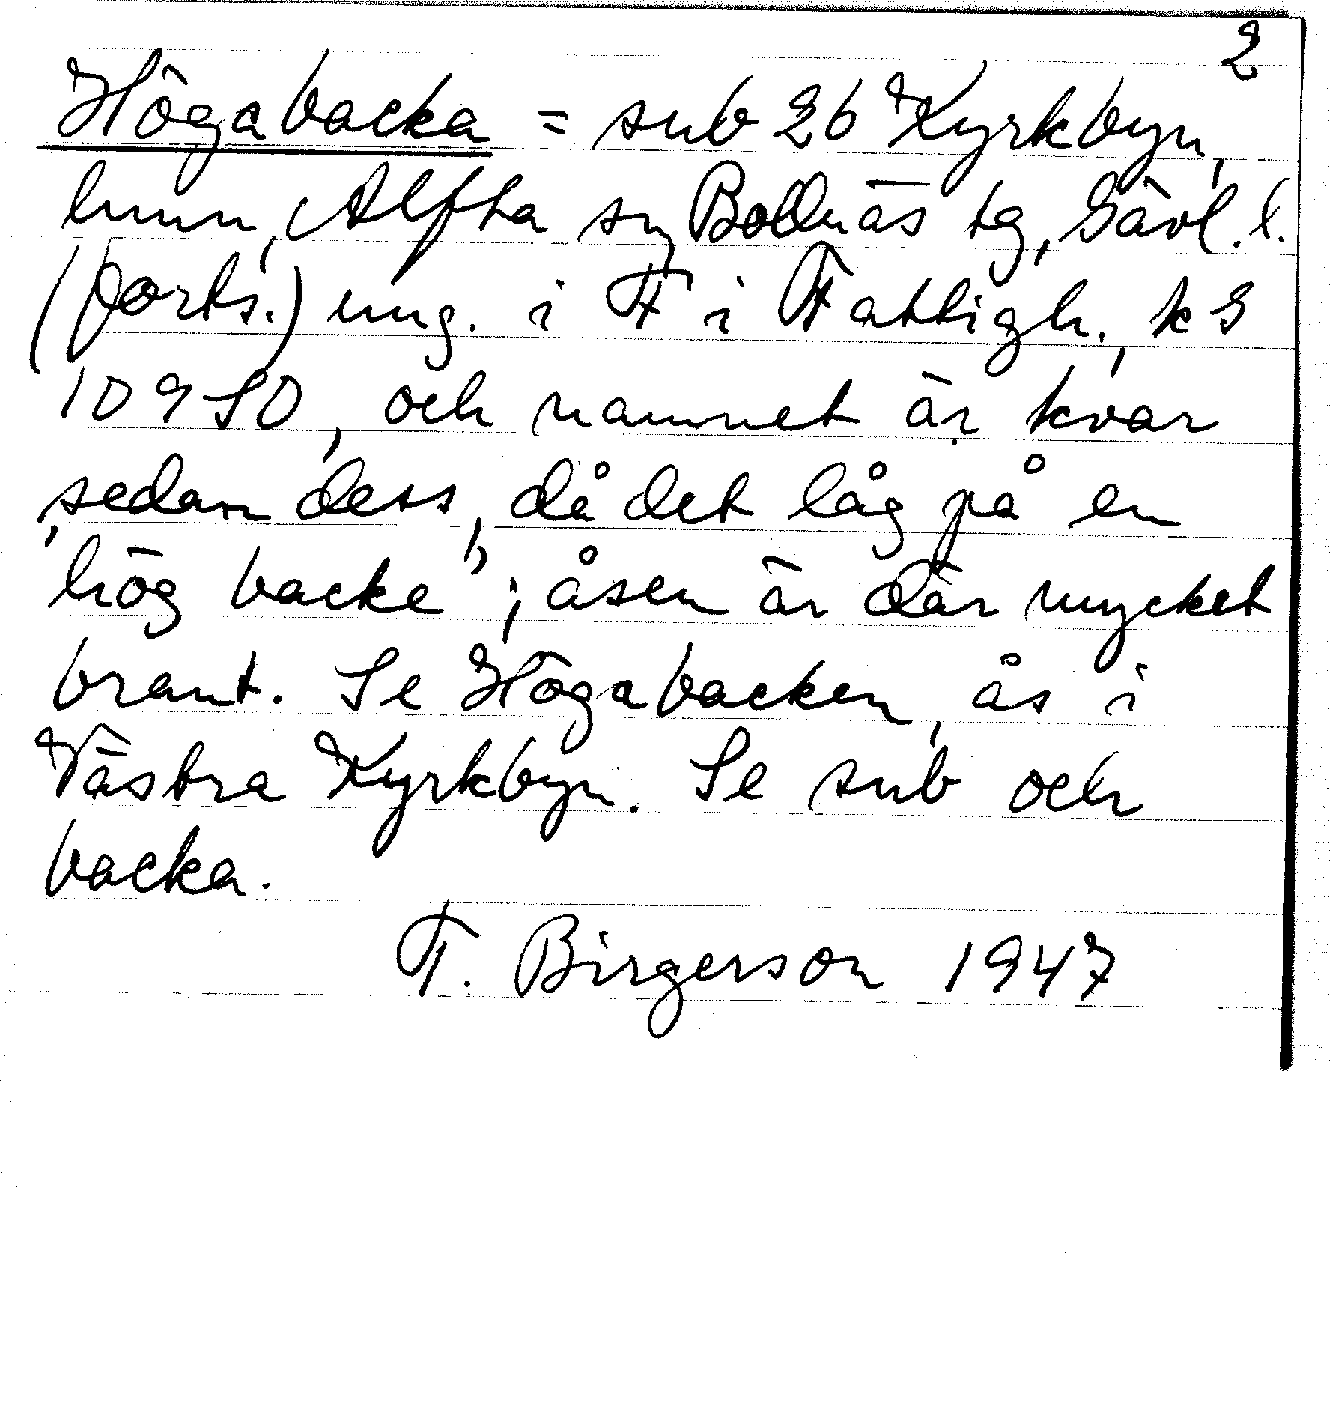 2
Högabacka = sub 26 Kyrkbyn,
hmn, Alfta sn Bollnäs tg, Gävl. l.
(forts.) ung. i F i Fattigh., k S
109 SO, och namnet är kvar
„sedan dess, då det låg på en
hög backe”; åsen är där mycket
brant. Se Högabacken, ås i
Västra Kyrkbyn. Se sub och
backa.
F. Birgerson 1947